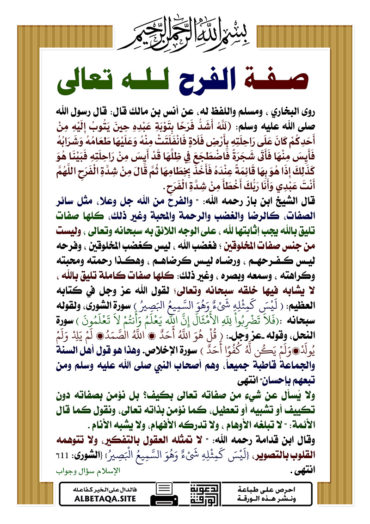 بسم الله الرحمن الرحيم
صفة الفرح لله تعالى
روى البخاري ، ومسلم واللفظ له، عن أنس بن مالك قال: قال رسول الله
صلى الله عليه وسلم: (لَلَّهُ أَشَدُّ فَرَحًا بِتَوْبَةِ عَبْدِهِ حِينَ يَتُوبُ إِلَيْهِ مِنْ
أَحَدِكُمْ كَانَ عَلَى رَاحِلَتِهِ بِأَرْضِ فَلَاةٍ فَانْفَلَتَتْ مِنْهُ وَعَلَيْهَا طَعَامُهُ وَشَرَابُهُ
فَأَيِسَ مِنْهَا فَأَتَى شَجَرَةً فَاضْطَجَعَ فِي ظِلِّهَا قَدْ أَيِسَ مِنْ رَاحِلَتِهِ فَبَيْنَا هُوَ
كَذَلِكَ إِذَا هُوَ بِهَا قَائِمَةً عِنْدَهُ فَأَخَذَ بِخِطَامِهَا ثُمَّ قَالَ مِنْ شِدَّةِ الْفَرَحِ اللَّهُمَّ
أَنْتَ عَبْدِي وَأَنَا رَبُّكَ أَخْطَأَ مِنْ شِدَّةِ الْفَرَحِ.
قال الشيخ ابن باز رحمه الله: - والفرح من الله جل وعلا، مثل سائر
الصفات، كالرضا والغضب والرحمة والمحبة وغير ذلك، كلها صفات
تليق بالله يجب إثباتها لله ، على الوجه اللائق به سبحانه وتعالى ، وليست
من جنس صفات المخلوقين ؛ فغضب الله ، ليس كغضب المخلوقين ، وفرحه
ليس كفرحهم ، ورضاه ليس كرضاهم ، وهكذا رحمته ومحبته
وكراهته ، وسمعه وبصره ، وغير ذلك؛ كلها صفات كاملة تليق بالله ،
لا يشابه فيها خلقه سبحانه وتعالى؛ لقول الله عز وجل في كتابه
العظيم: ( لَيْسَ كَمِثْلِهِ شَيْءٌ وَهُوَ السَّمِيعُ البَصِيرُ ) سورة الشورى، ولقوله
سبحانه :(فَلاَ تَضْرِبُواْ لِلّهِ الأَمْثَالَ إِنَّ اللّهَ يَعْلَمُ وَأَنتُمْ لاَ تَعْلَمُونَ ) سورة
النحل، وقوله ـعز وجل: ( قُلْ هُوَ اللَّهُ أَحَدٌ ۞ اللَّهُ الصَّمَدُ۞ لَمْ يَلِدْ وَلَمْ
يُولَدْ۞وَلَمْ يَكُن لَّهُ كُفُوًا أَحَدٌ ) سورة الإخلاص. وهذا هو قول أهل السنة
والجماعة قاطبة جميعاً، وهم أصحاب النبي صلى الله عليه وسلم ومن
تبعهم بإحسان- انتهى
ولا يُسأل عن شيء من صفاته تعالى بكيف؟ بل نؤمن بصفاته دون
تكييف أو تشبيه أو تعطيل، كما نؤمن بذاته تعالى، ونقول كما قال
الأئمة: - لا تبلغه الأوهام ، ولا تدركه الأفهام، ولا يشبه الأنام .
وقال ابن قدامة رحمه الله: - لا تمثله العقول بالتفكير، ولا تتوهمه
القلوب بالتصوير، (لَيْسَ كَمِثْلِهِ شَيْءٌ وَهُوَ السَّمِيعُ الْبَصِيرُ) الشورى: ١١٦
انتهى .
الإسلام سؤال وجواب
احرص على طباعة
ونشر هذه الورقة
الدعوية
الورقة
فالدال على الخير كفاعله
ALBETAQA.SITE